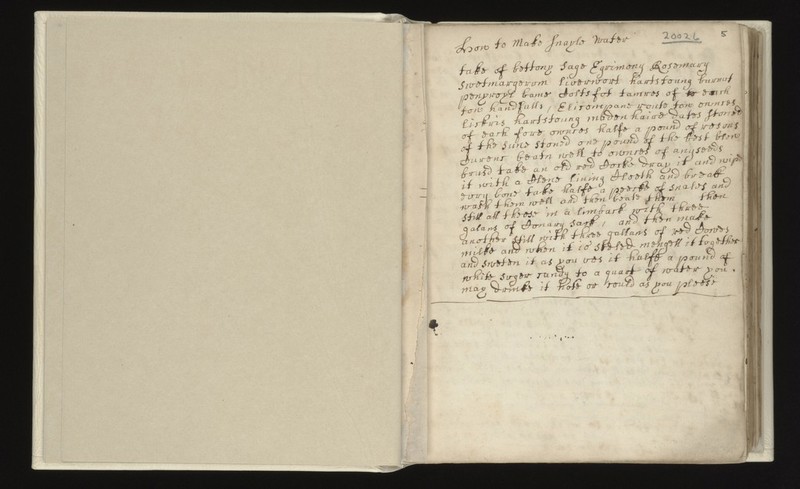 How to Make Snayle Water
20026
5
take of bettony Sage Egrimony Rosemary
Swetmargerom liverwort hartstoung burnit
penyroyl bame Coltsfot tamres of each
tow handfulls, Elicompane route tow ownses
liskris hartstoung medenhaire dates stoned
of each fore ownces halfe a pound of resons
of the sune stoned one pound of the best blew
Curens beatn well to ownces of anyseeds
brused take an old red Cocke drap it and wipe
it with a Clene lining Cloeth and breake
every bone take halfe a peecke of snales and
wash them well and then beate them then
still all these in a limback with three
galans of Conary Sack, and then make
another still with three gallans of red Cowes
milke and when it is steled mengell it together
and sweten it as you ues it halfe a pound of
white Suger Candy to a quart of water you
may drinke it hote or Could as you pleese